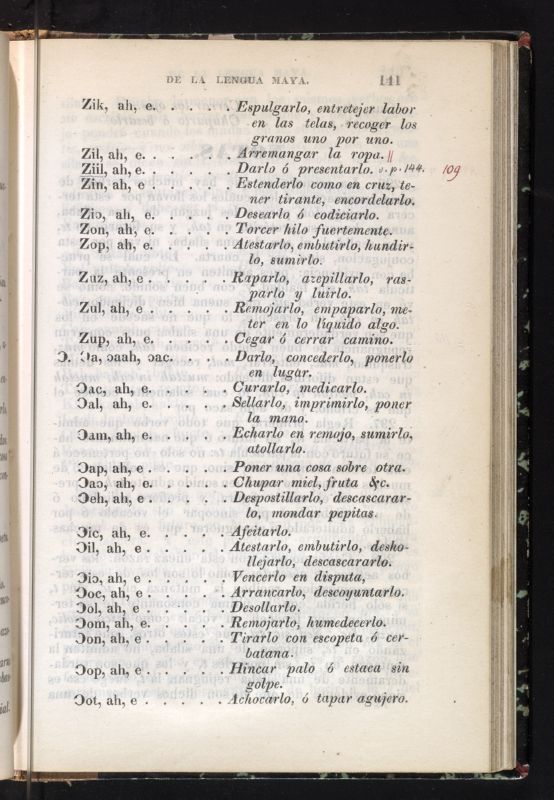 DE LA LENGUA MAYA. 141
Zik, ah, e. . . . . Espulgarlo, entretejer labor
en las telas, recoger los
granos uno por uno.
Zil, ah, e. . . . . . Arremangar la ropa. ||
Ziil, ah, e. . . . . . Darlo ó presentarlo. v. p. 144. 109
Zin, ah, e . . . . . Estenderlo como en cruz, te-
ner tirante, encordelarlo.
Ziɔ, ah, e. . . . . Desearlo ó codiciarlo.
Zon, ah, e. . . . . Torcer hilo fuertemente.
Zop, ah, e. . . . . Atestarlo, embutirlo, hundir-
lo, sumirlo.
Zuz, ah, e . . . . . Raparlo, azepillarlo, ras-
parlo y luirlo.
Zul, ah, e . . . . . Remojarlo, empaparlo, me-
ter en lo líquido algo.
Zup, ah, e. . . . . Cegar ó cerrar camino.
Ɔ. Ɔa, ɔaah, ɔac. . . . Darlo, concederlo, ponerlo
en lugar.
Ɔac, ah, e. . . . . Curarlo, medicarlo.
Ɔal, ah, e. . . . . Sellarlo, imprimirlo, poner
la mano.
Ɔam, ah, e. . . . . Echarlo en remojo, sumirlo,
atollarlo.
Ɔap, ah, e . . . . . Poner una cosa sobre otra.
Ɔaɔ, ah, e. . . . . Chupar miel, fruta &c.
Ɔeh, ah, e . . . . . Despostillarlo, descascarar-
lo, mondar pepitas.
Ɔic, ah, e. . . . . Afeitarlo.
Ɔil, ah, e . . . . . Atestarlo, embutirlo, desho-
llejarlo, descascararlo.
Ɔiɔ, ah, e . . . . . Vencerlo en disputa,
Ɔoc, ah, e . . . . . Arrancarlo, descoyuntarlo.
Ɔol, ah, e . . . . . Desollarlo.
Ɔom, ah, e. . . . . Remojarlo, humedecerlo.
Ɔon, ah, e . . . . . Tirarlo con escopeta ó cer-
batana.
Ɔop, ah, e . . . . . Hincar palo ó estaca sin
golpe.
Ɔot, ah, e . . . . . Achocarlo, ó tapar agujero.